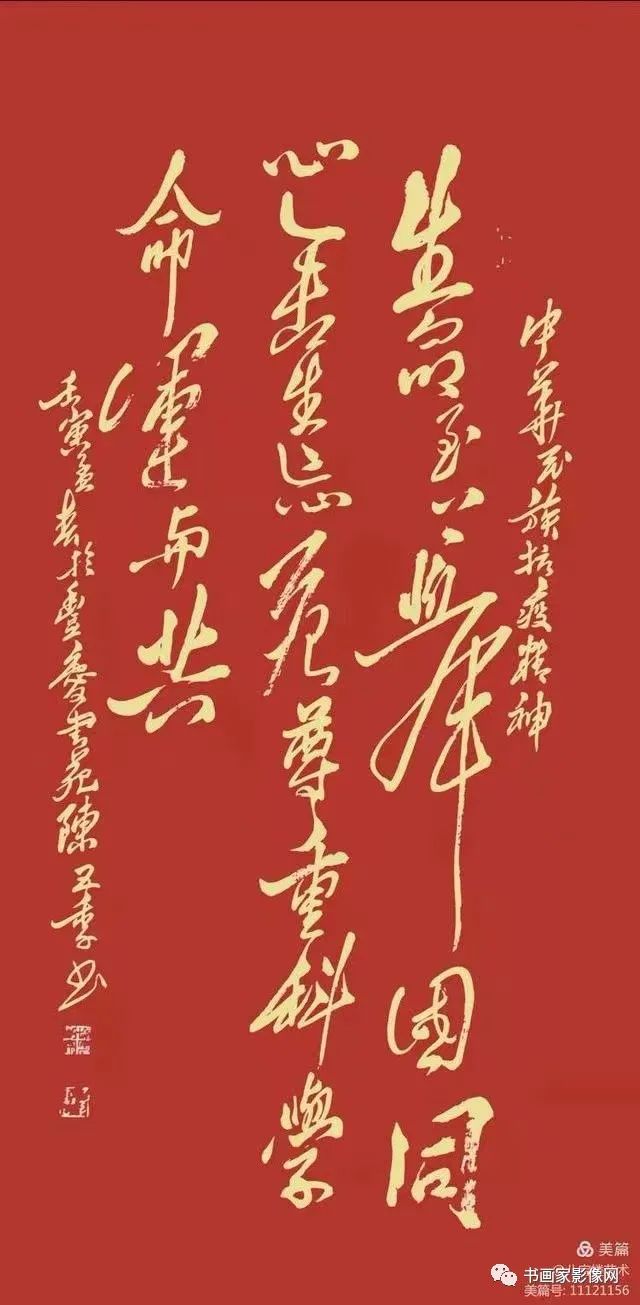 中華民族抗疫精神
生命至上舉國同
心舍生忘死尊重科學
命運與共
壬寅孟春於豐慶書苑陳五季书
美篇
书画家影像网
美篇号: 11121156